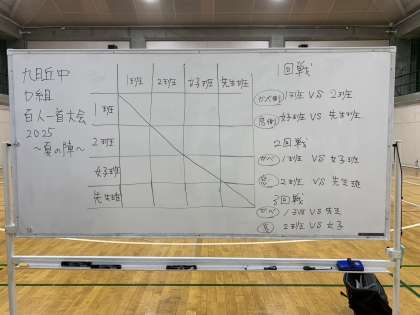 九日丘中
D組
百人一首大会
2025
〜夏の陣〜
1班 2班 女子班 先生班
1班
2班
女子班
先生班
1回戦
かべ側 1班 VS 2班
窓側 女子班 VS 先生班
2回戦
かべ 1班 VS 女子班
窓 2班 VS 先生班
3回戦
かべ 1班 VS 先生
窓 2班 VS 女子